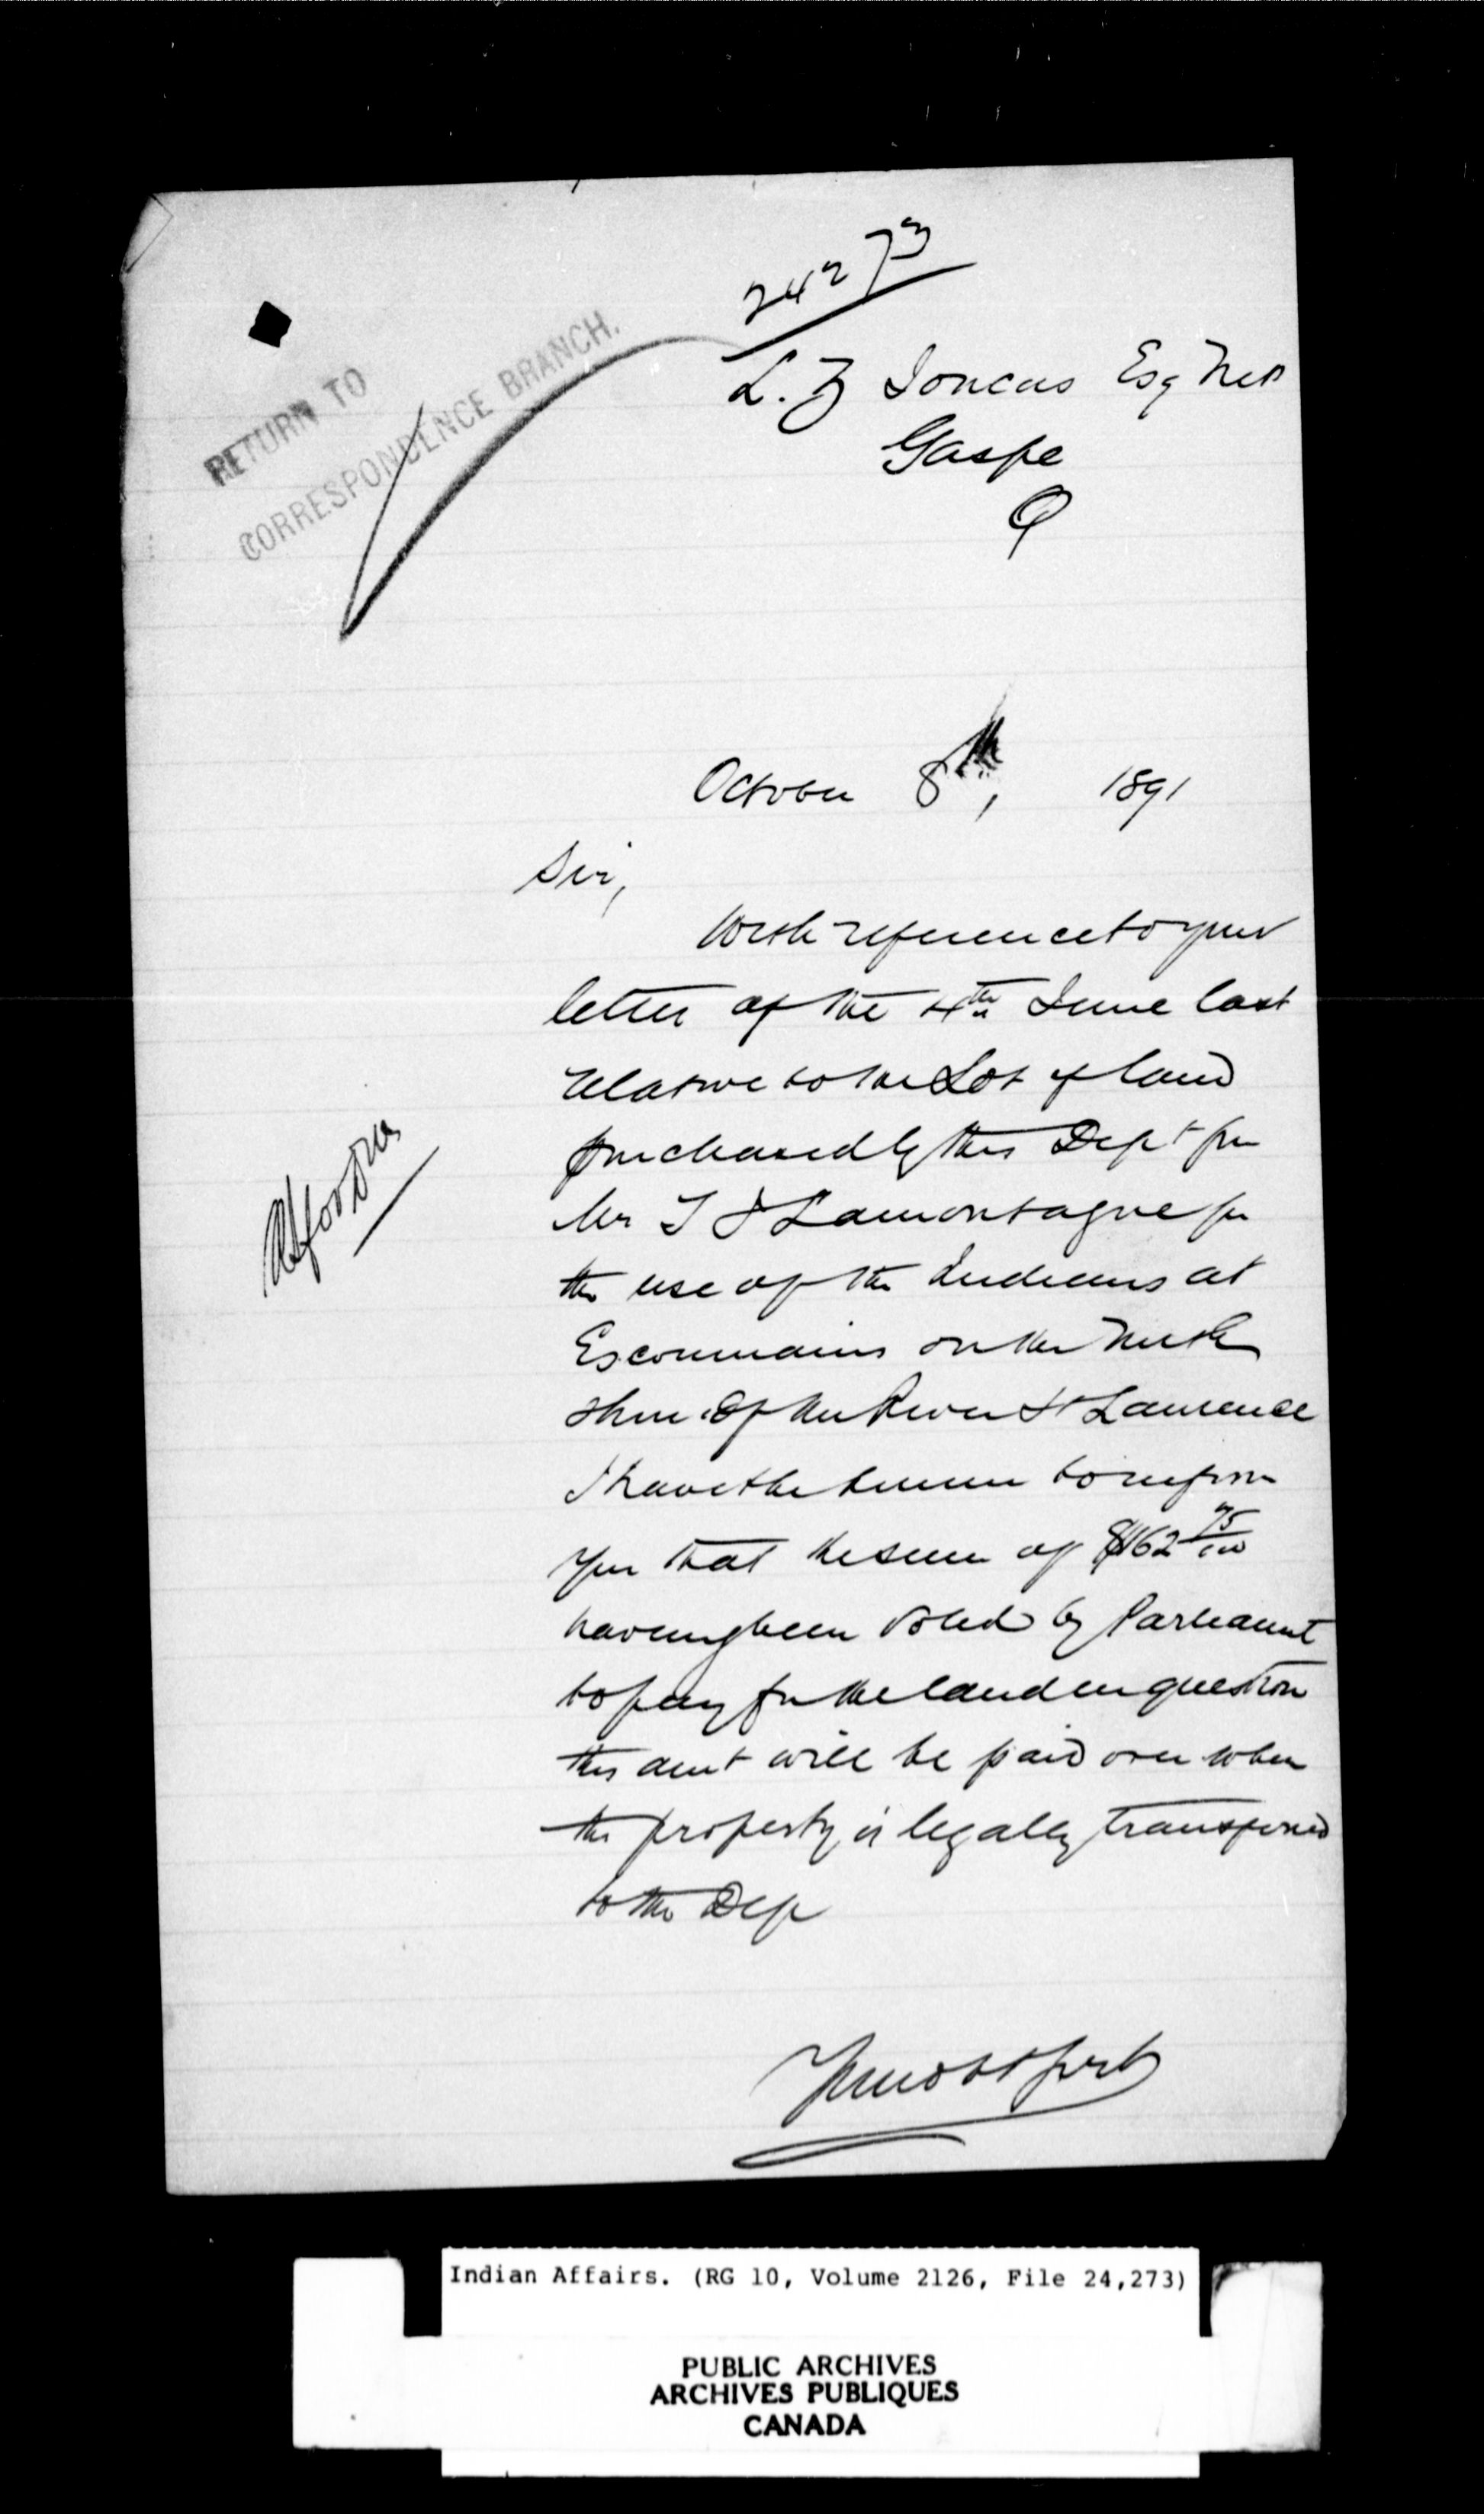 24273
RETURN TO
CORRESPONDENCE BRANCH.
L. Z Joncas Esq MP
Gaspe
Q
October 8th, 1891
Sir,
With reference to your
letter of the 4th June last
relative to the Lot of land
purchased by this Dept from
Mr T J Lamontagne for
the use of the Indians at
Escoumains on the North
shore of the River St Lawrence
I have the honour to inform
you that the sum of $162 75/100
having been voted by Parliament
to pay for the land in question
this amt will be paid over when
the property is legally transferred
to the Dep
Indian Affairs. (RG 10, Volume 2126, File 24,273)
PUBLIC ARCHIVES
ARCHIVES PUBLIQUES
CANADA